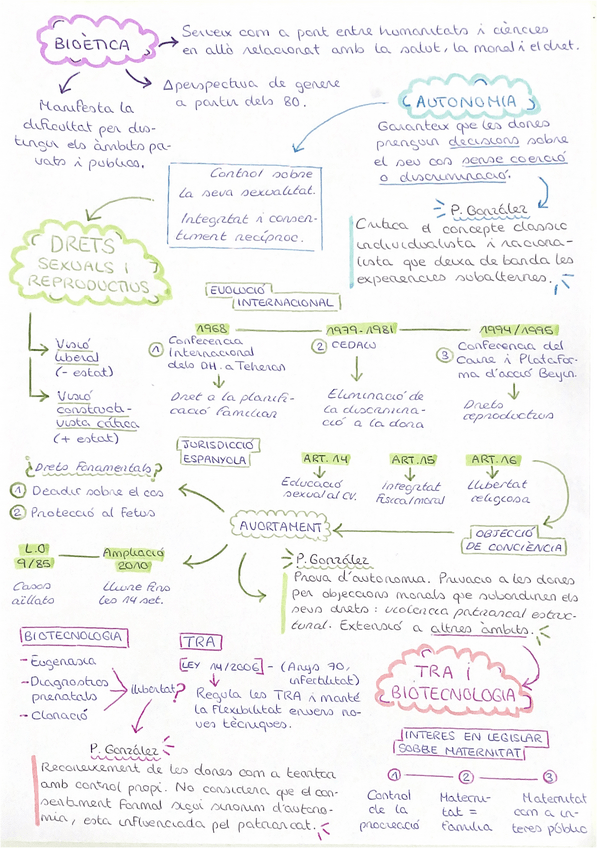 BIOÈTICA
Serveix com a pont entre humanitats i ciències
en allò relacionat amb la salut, la moral i el dret.
Δ perspectiva de genere
a partir dels 80.
Manifesta la
dificultat per dis-
tingir els àmbits pri-
vats i públics.
AUTONOMIA
Garanteix que les dones
prenguin decisions sobre
el seu cos sense coerció
o discriminació.
Control sobre
la seva sexualitat.
Integritat i consen-
timent recíproc.
P. González
Critica el concepte clàssic
individualista i raciona-
lista que deixa de banda les
experiencies subalternes.
DRETS
SEXUALS I
REPRODUCTIUS
EVOLUCIÓ
INTERNACIONAL
Visió
liberal
(- estat)
Visió
constructi-
vista crítica
(+ estat)
1968
1 Conferencia
Internacional
dels DH. a Teheran
Dret a la planifi-
cació familiar
1979-1981
2 CEDAW
Eliminació de
la discrimina-
ció a la dona
1994/1995
3 Conferencia del
Caire i Platafor-
ma d'acció Beijin.
Drets
reproductius
JURISDICCIÓ
ESPANYOLA
ART. 14
Educació
sexual al CV.
ART. 15
Integritat
física/moral
ART. 16
Llibertat
religiosa
¿Drets Fonamentals?
1 Decidir sobre el cos
2 Protecció al Fetus
AVORTAMENT
OBJECCIÓ
DE CONCIÈNCIA
L.O
9/85
Casos
aïllats
Ampliació
2010
Lliure fins
les 14 set.
P. González
Prova d'autonomia. Privació a les dones
per objeccions morals que subordinen els
seus drets: violencia patriarcal estruc-
tural. Extensió a altres àmbits.
BIOTECNOLOGIA
- Eugenasia
- Diagnostics
prenatals
- Clonació
llibertat?
TRA
LEY 14/2006 - (Anys 70,
infertilitat)
Regula les TRA i manté
la flexibilitat envers no-
ves tècniques.
TRA I
BIOTECNOLOGIA
P. González
Reconeixement de les dones com a
amb control propi. No considera que el con-
sentiment formal sigui sinonim d'autono-
mia, esta influenciada pel patriarcat.
INTERES EN LEGISLAR
SOBRE MATERNITAT
1 2 3
Control
de la
procreació
Materni-
tat =
família
Maternitat
com a in-
teres públic